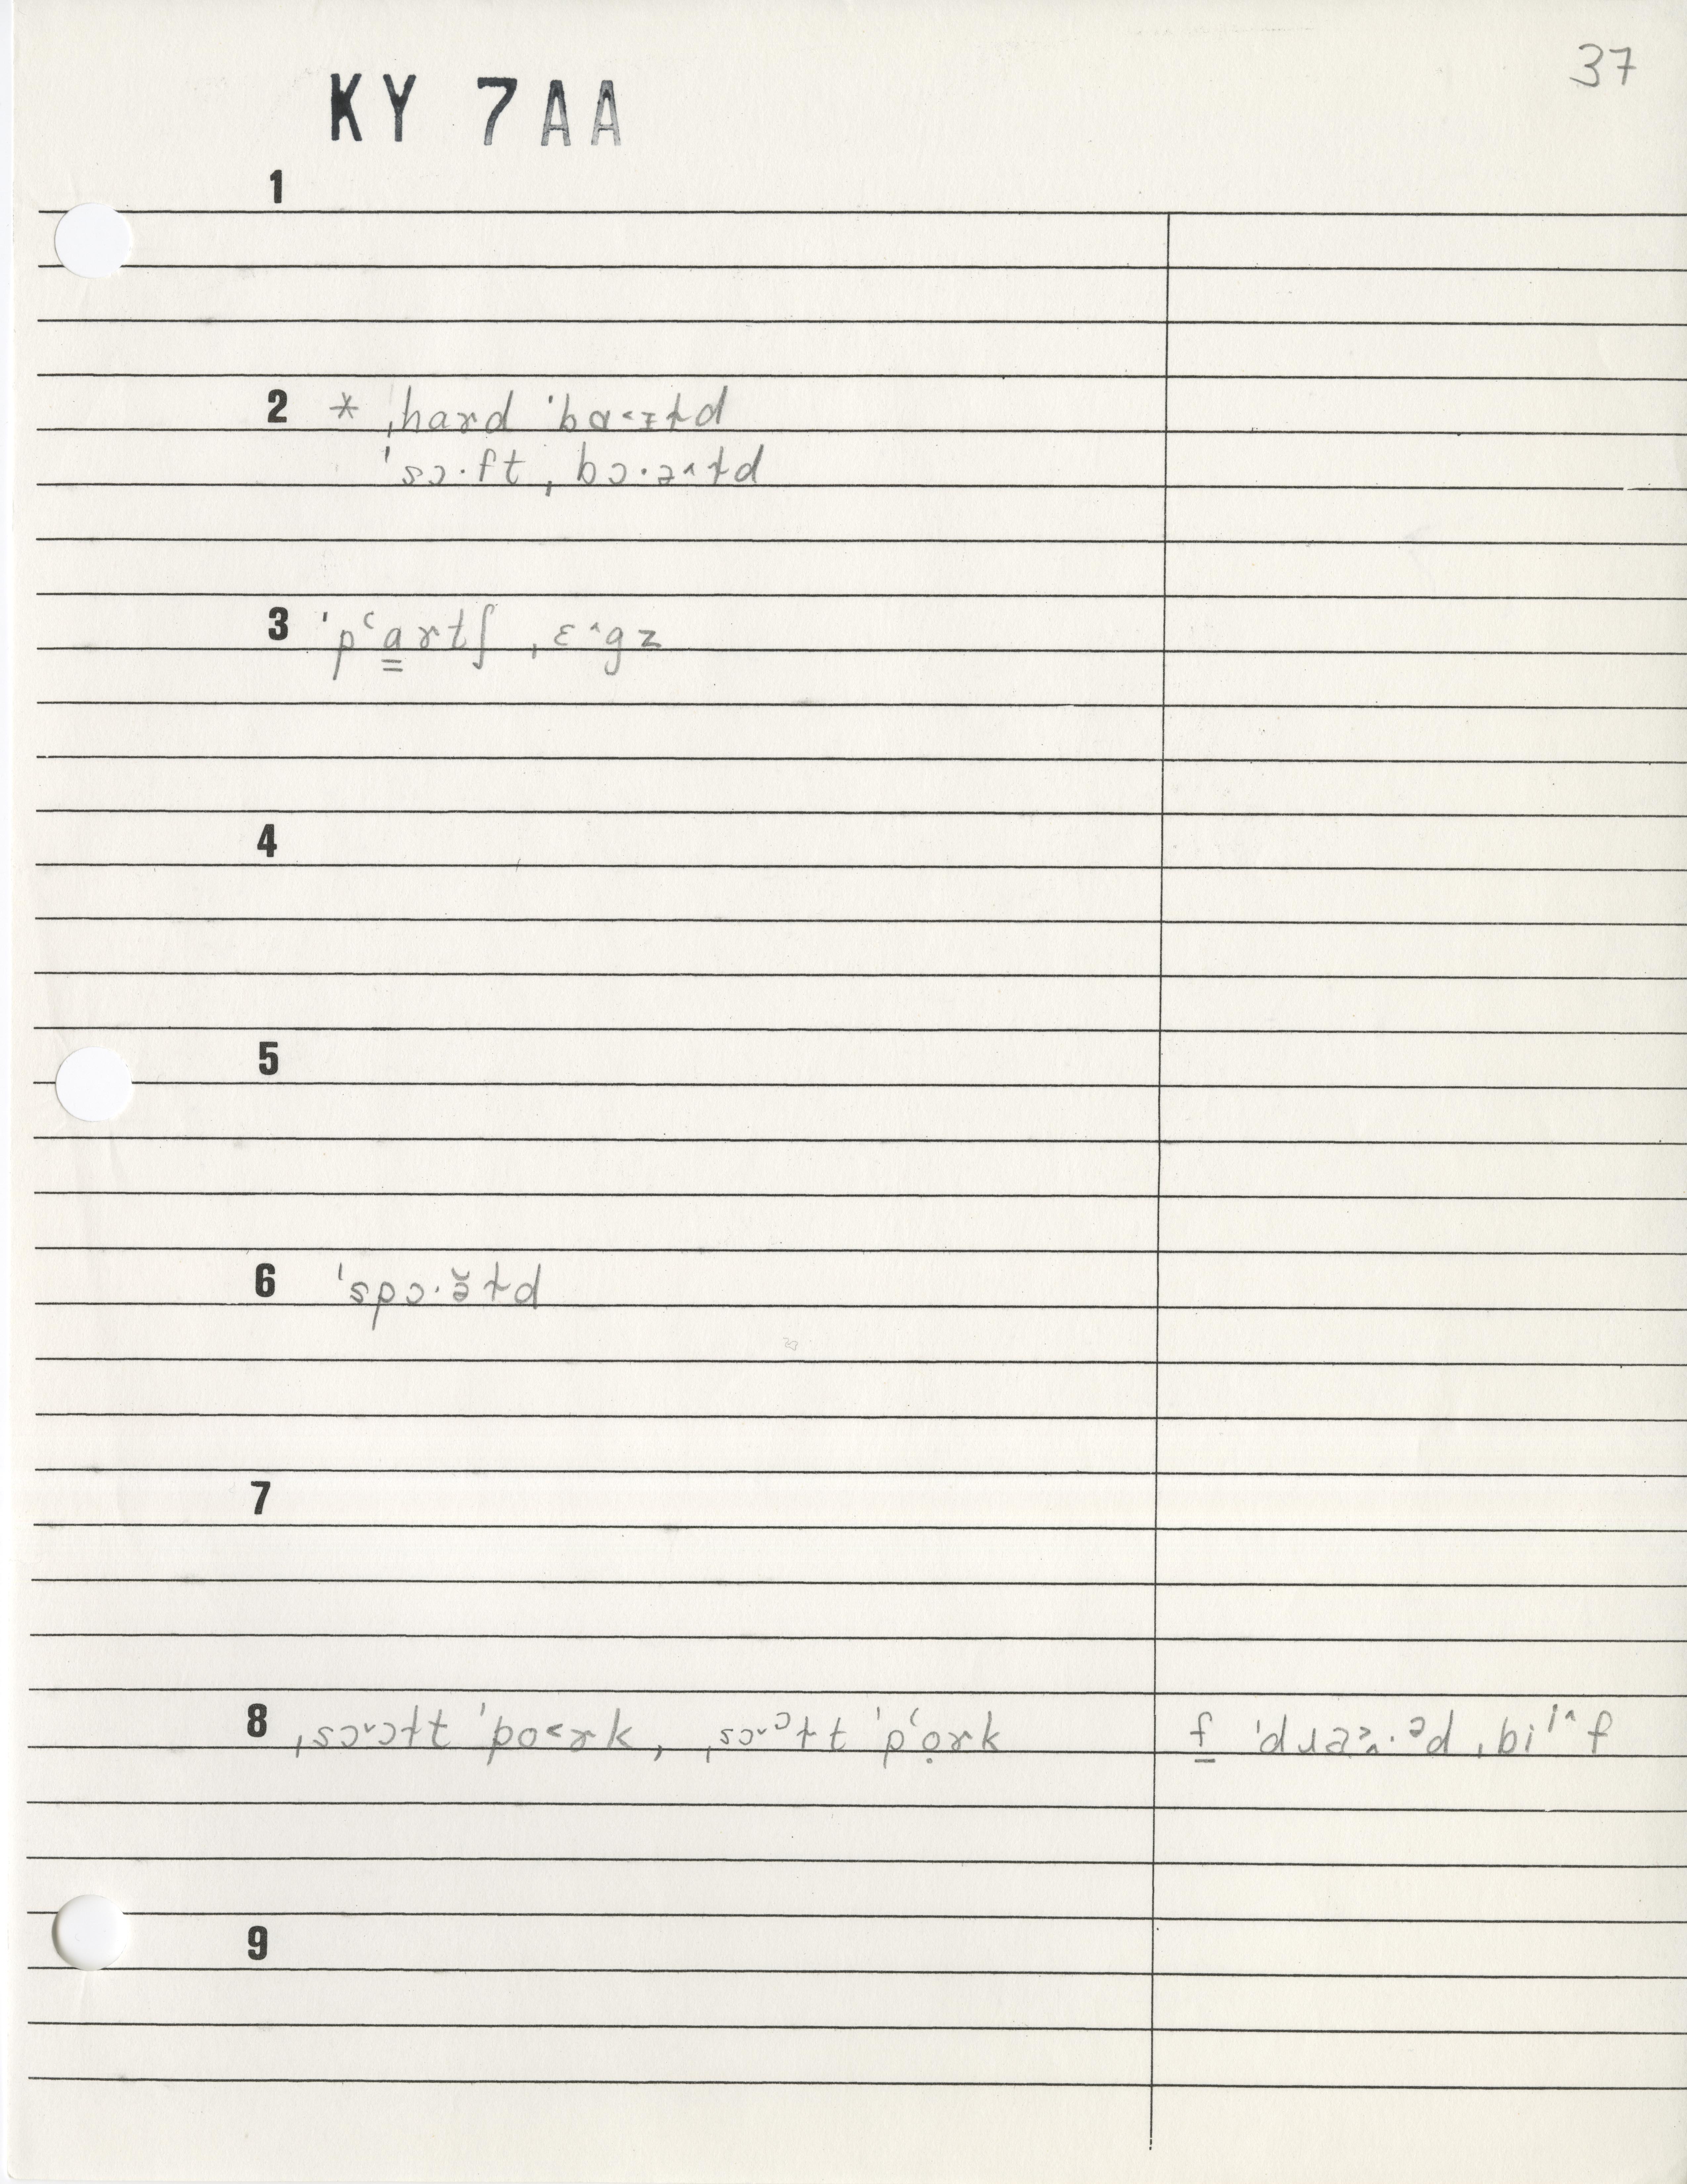 37
KY 7AA
1
2 * ˌhard ˈbɑ˂ɪɫd
ˈsɔ·ft ˌbɔ·ə^ɫd
3 ˈpʻa̳rtʃ ˌɛ^gz
4
5
6 ˈspɔ·ə̆ɫd
7
8 ˌsɔ˅ɔɫt ˈpo˂rk, ˌsɔ˅ᵓɫt ˈpʻọrk f̲ ˈdɹaɛ·ᵊd ˌbiⁱ^f
9